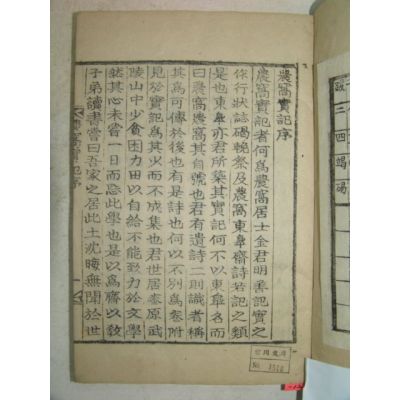 農窩實記序
農窩實記者何爲農窩居士金君明善記實之
作行狀誌碣輓祭及農窩東皐齋詩若記之類
是也東皐亦君所築其實記何不以東皐名而
曰農窩農窩其自號也君有遺詩二則識者稱
其爲可傳於後也有是詩也何以不別爲卷附
見於實記爲其少而不成集也君世居泰原武
陵山中少貧困力田以自給不能致力於文學
然其心未嘗一日而忘此學也是以爲齋以教
子弟讀書嘗曰吾家之居此土沈晦無聞於世
農窩實記序
一
二四
No 1512